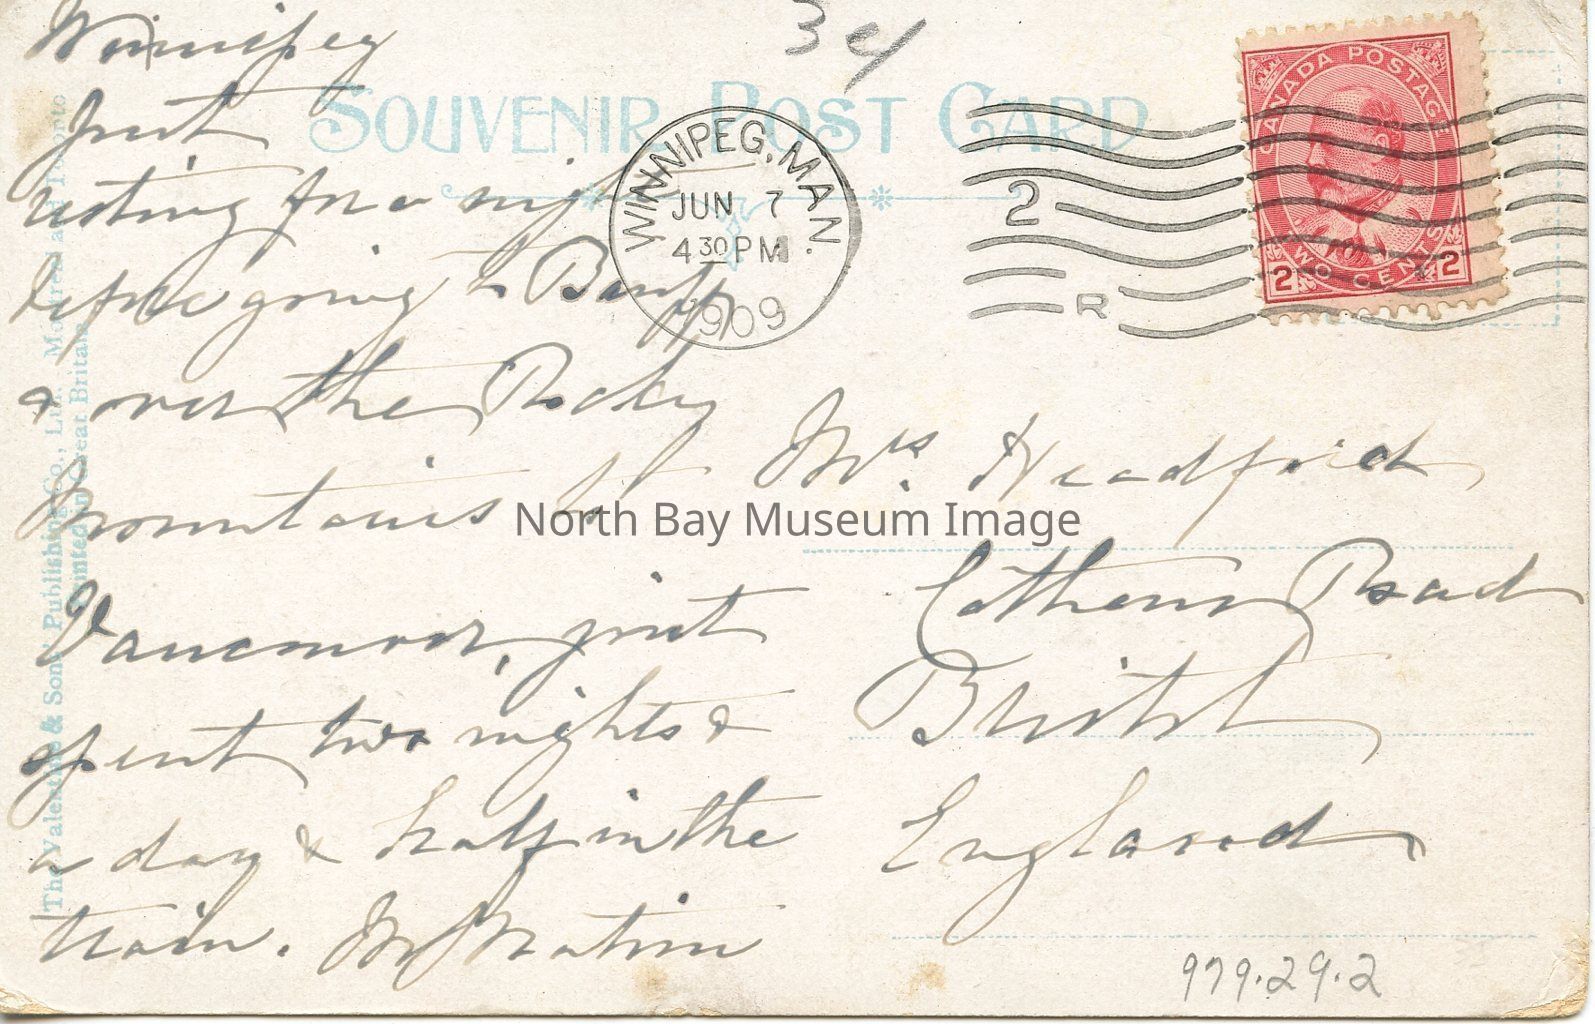 Winnipeg
Just
resting for a night
before going to Banff
& over the Rocky
Mountains to
Vancouver, just
spent two nights &
a day & half in the
train. M
3 ey
SOUVENIR POST CARD
WINNIPEG, MAN.
JUN 7
4 30 PM
1909
2
R
CANADA POSTAGE
2 TWO CENTS 2
Mrs. Headford
Cotham Road
Bristol
England
North Bay Museum Image
979.29.2
The Valentine & Sons' Publishing Co., Ltd., Montreal and Toronto
Printed in Great Britain